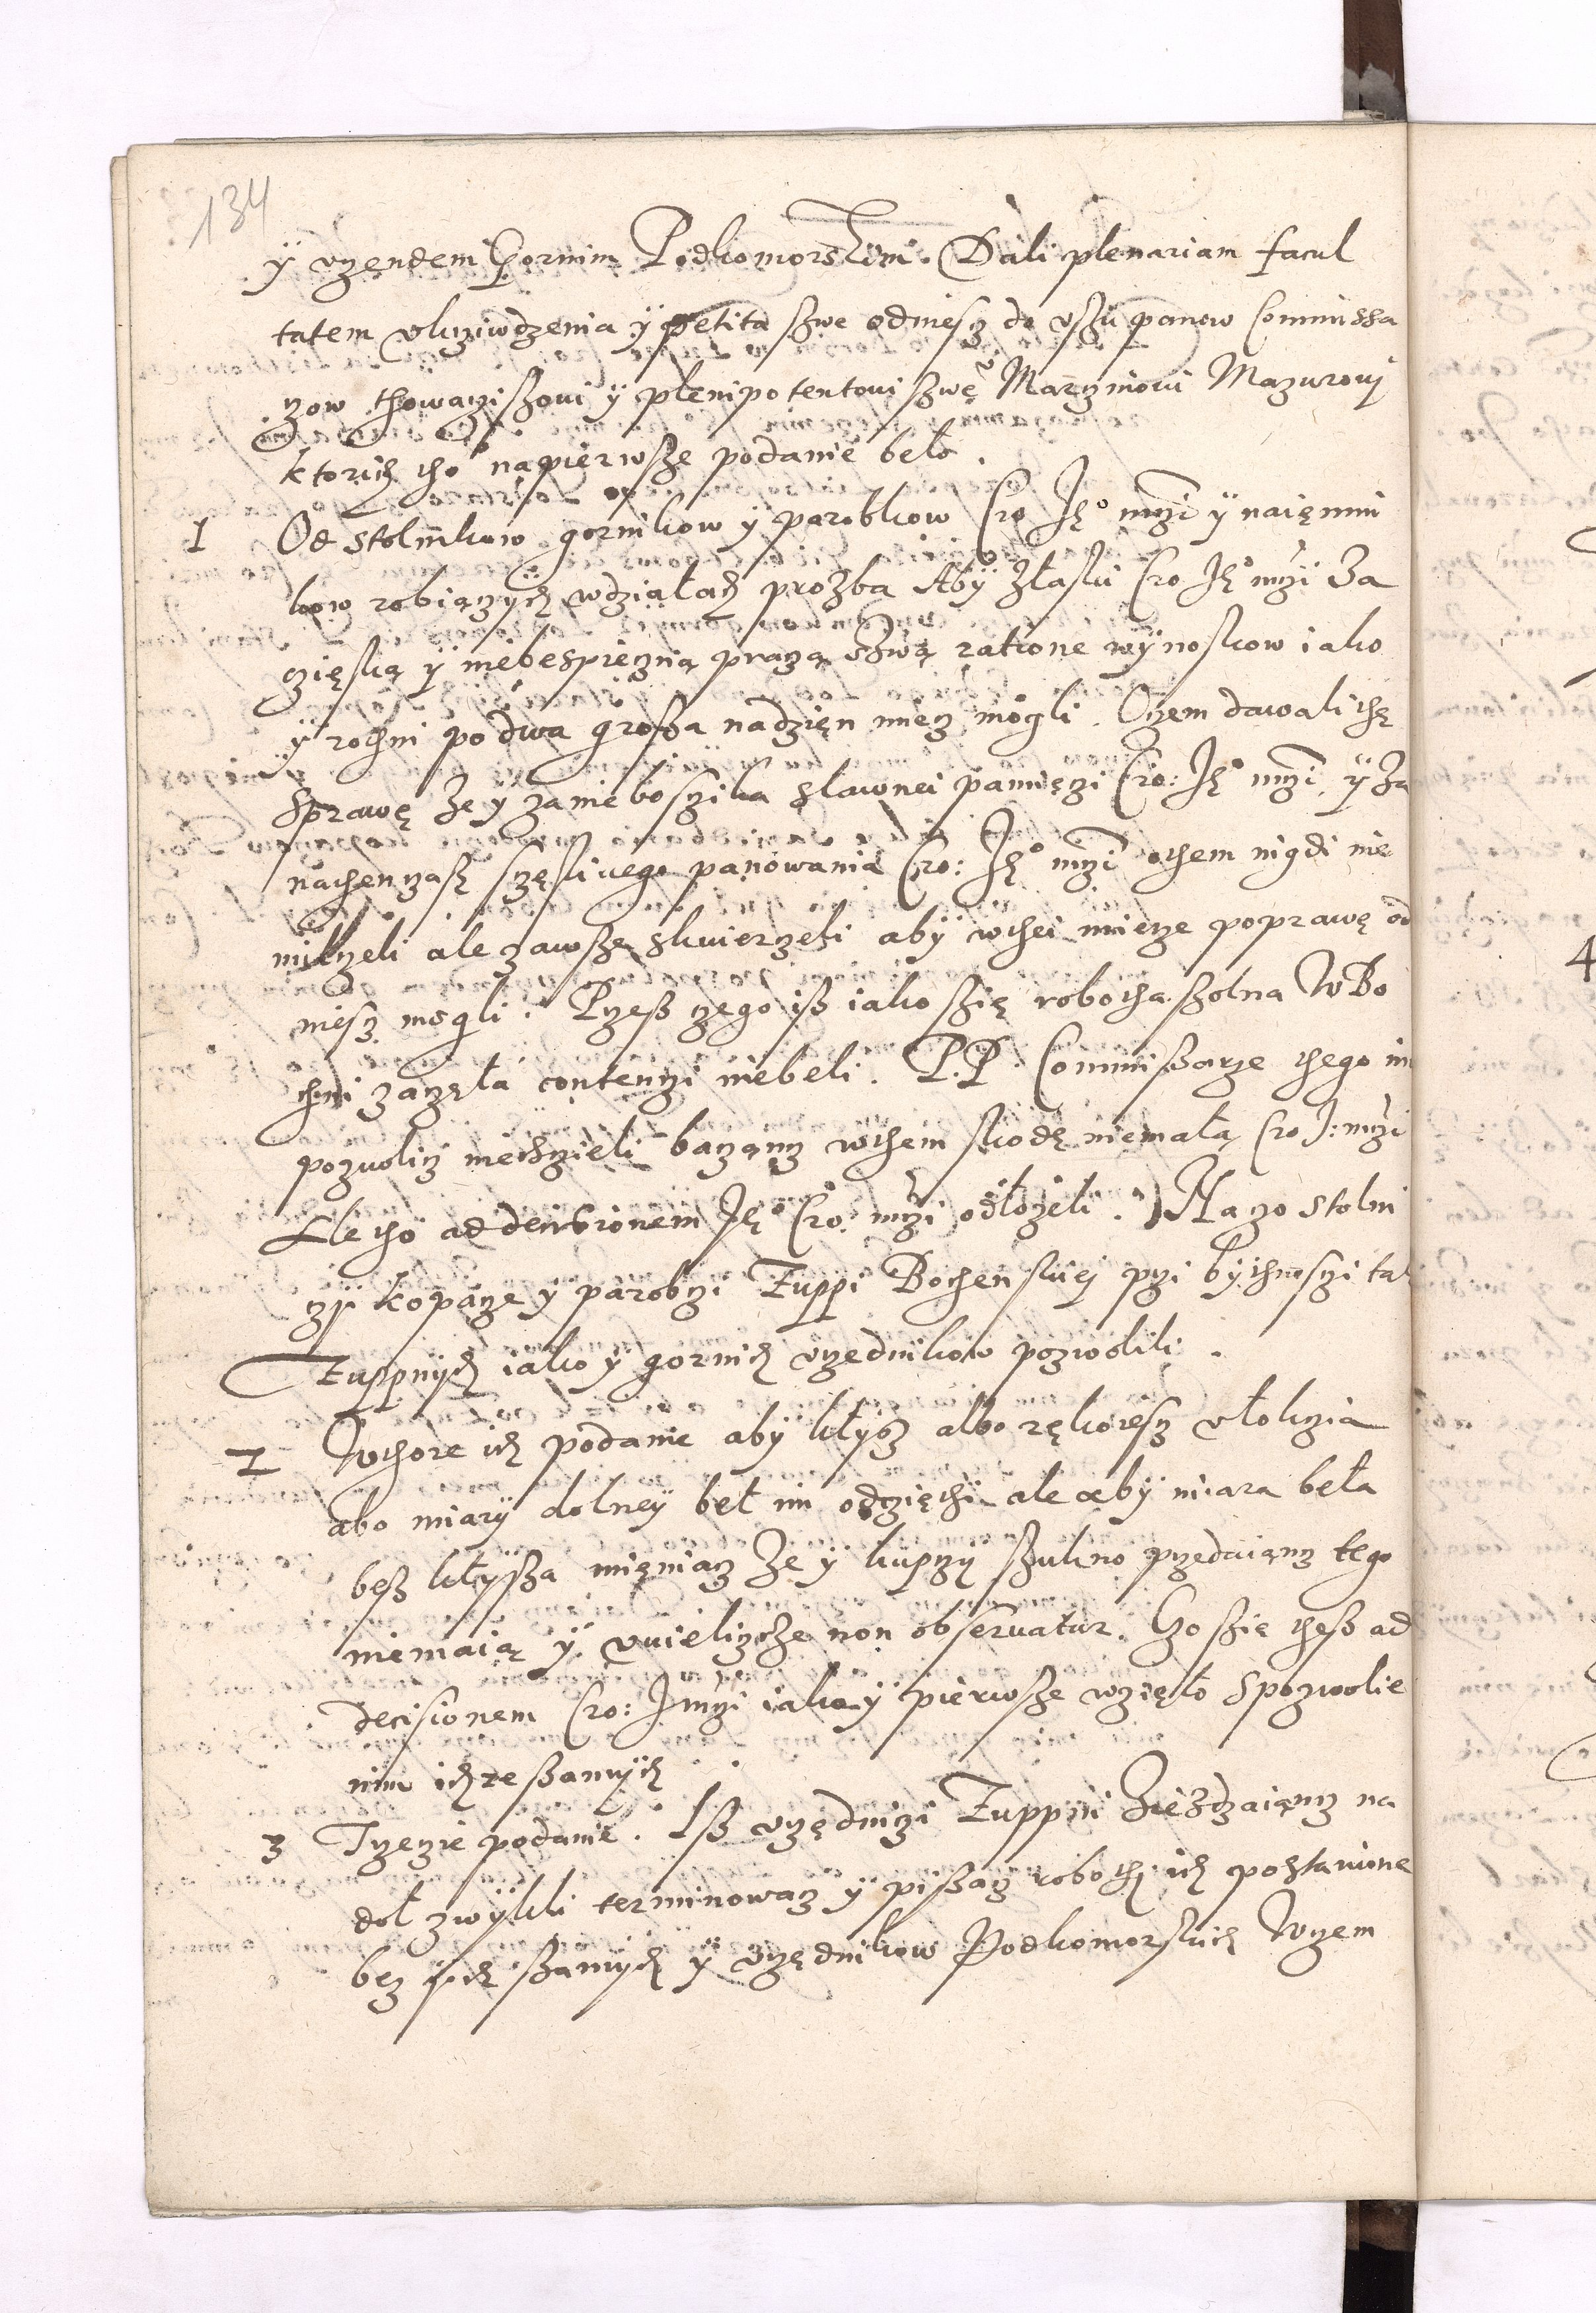 134
ÿ vrzendem Gornim Podkomorskim. Dali plenariam facul
tatem vkrziwdzenia ÿ petita szwe odniesz do vszu panow Commissa
rzow thowarziszowi ÿ plenipotentowi szwe° Marczinowi Mazurowj
ktorich tho napierwsze podanie beło.
1 Od stolnikow gornikow ÿ parobkow Cro Je° mczi ÿ naiemni
kow robiączÿch wdziałach prozba Abÿ złaski Cro Je° mczi Za
czięską ÿ niebespieczną praczą szwą ratione wÿnoskow iako
ÿ rothni po dwa grosza nadzięn miecz mogli. Oczem dawali thę
sprawę Ze y za nieboszczika sławnei pamięczi Cro: Je° mczi ÿ Za
nathen czasz szczęsliwego panowania Cro: Je° mczi othem nigdi nie
milczeli ale zawsze skwierczeli abÿ wthei mierze poprawę od
niesz mogli. Przesz czego isz iako szię robotha szolna W Bo
chni zaczęła contenczi niebeli. P.P. Commissarze thego im
pozwolicz niechczieli baczącz wthem skodę niemałą Cro J: mczi
Ale tho ad decisionem Je° Cro: mczi odłożeli. Na czo stolni
czÿ kopacze ÿ parobczi Zuppi Bochenskiej przi bÿthnosczi tak
Zuppnÿch iako ÿ gornich vrzednikow pozwolili.
2 Wthore ich podanie abÿ kłÿsz albo rękoiesz vłokczia
abo miarÿ dolneÿ beł im odczięthi ale abÿ miara beła
besz kłÿsza mieniącz Ze ÿ kupczÿ szukno przedaiącz tego
niemaią ÿ vwieliczcze non obseruatur. Czo szię thesz ad
decisionem Cro: J mczi iako ÿ pierwsze wzięło spozwolie
nim ich ze szamÿch
3 Trzeczie podanie. Isz vrzędniczi Zuppni Zieżdzaiącz na
doł zwÿkli terminowacz ÿ piszacz robothÿ ich postawione
bez ich szamÿch ÿ vrzędnikow Podkomorskich Wczem
4